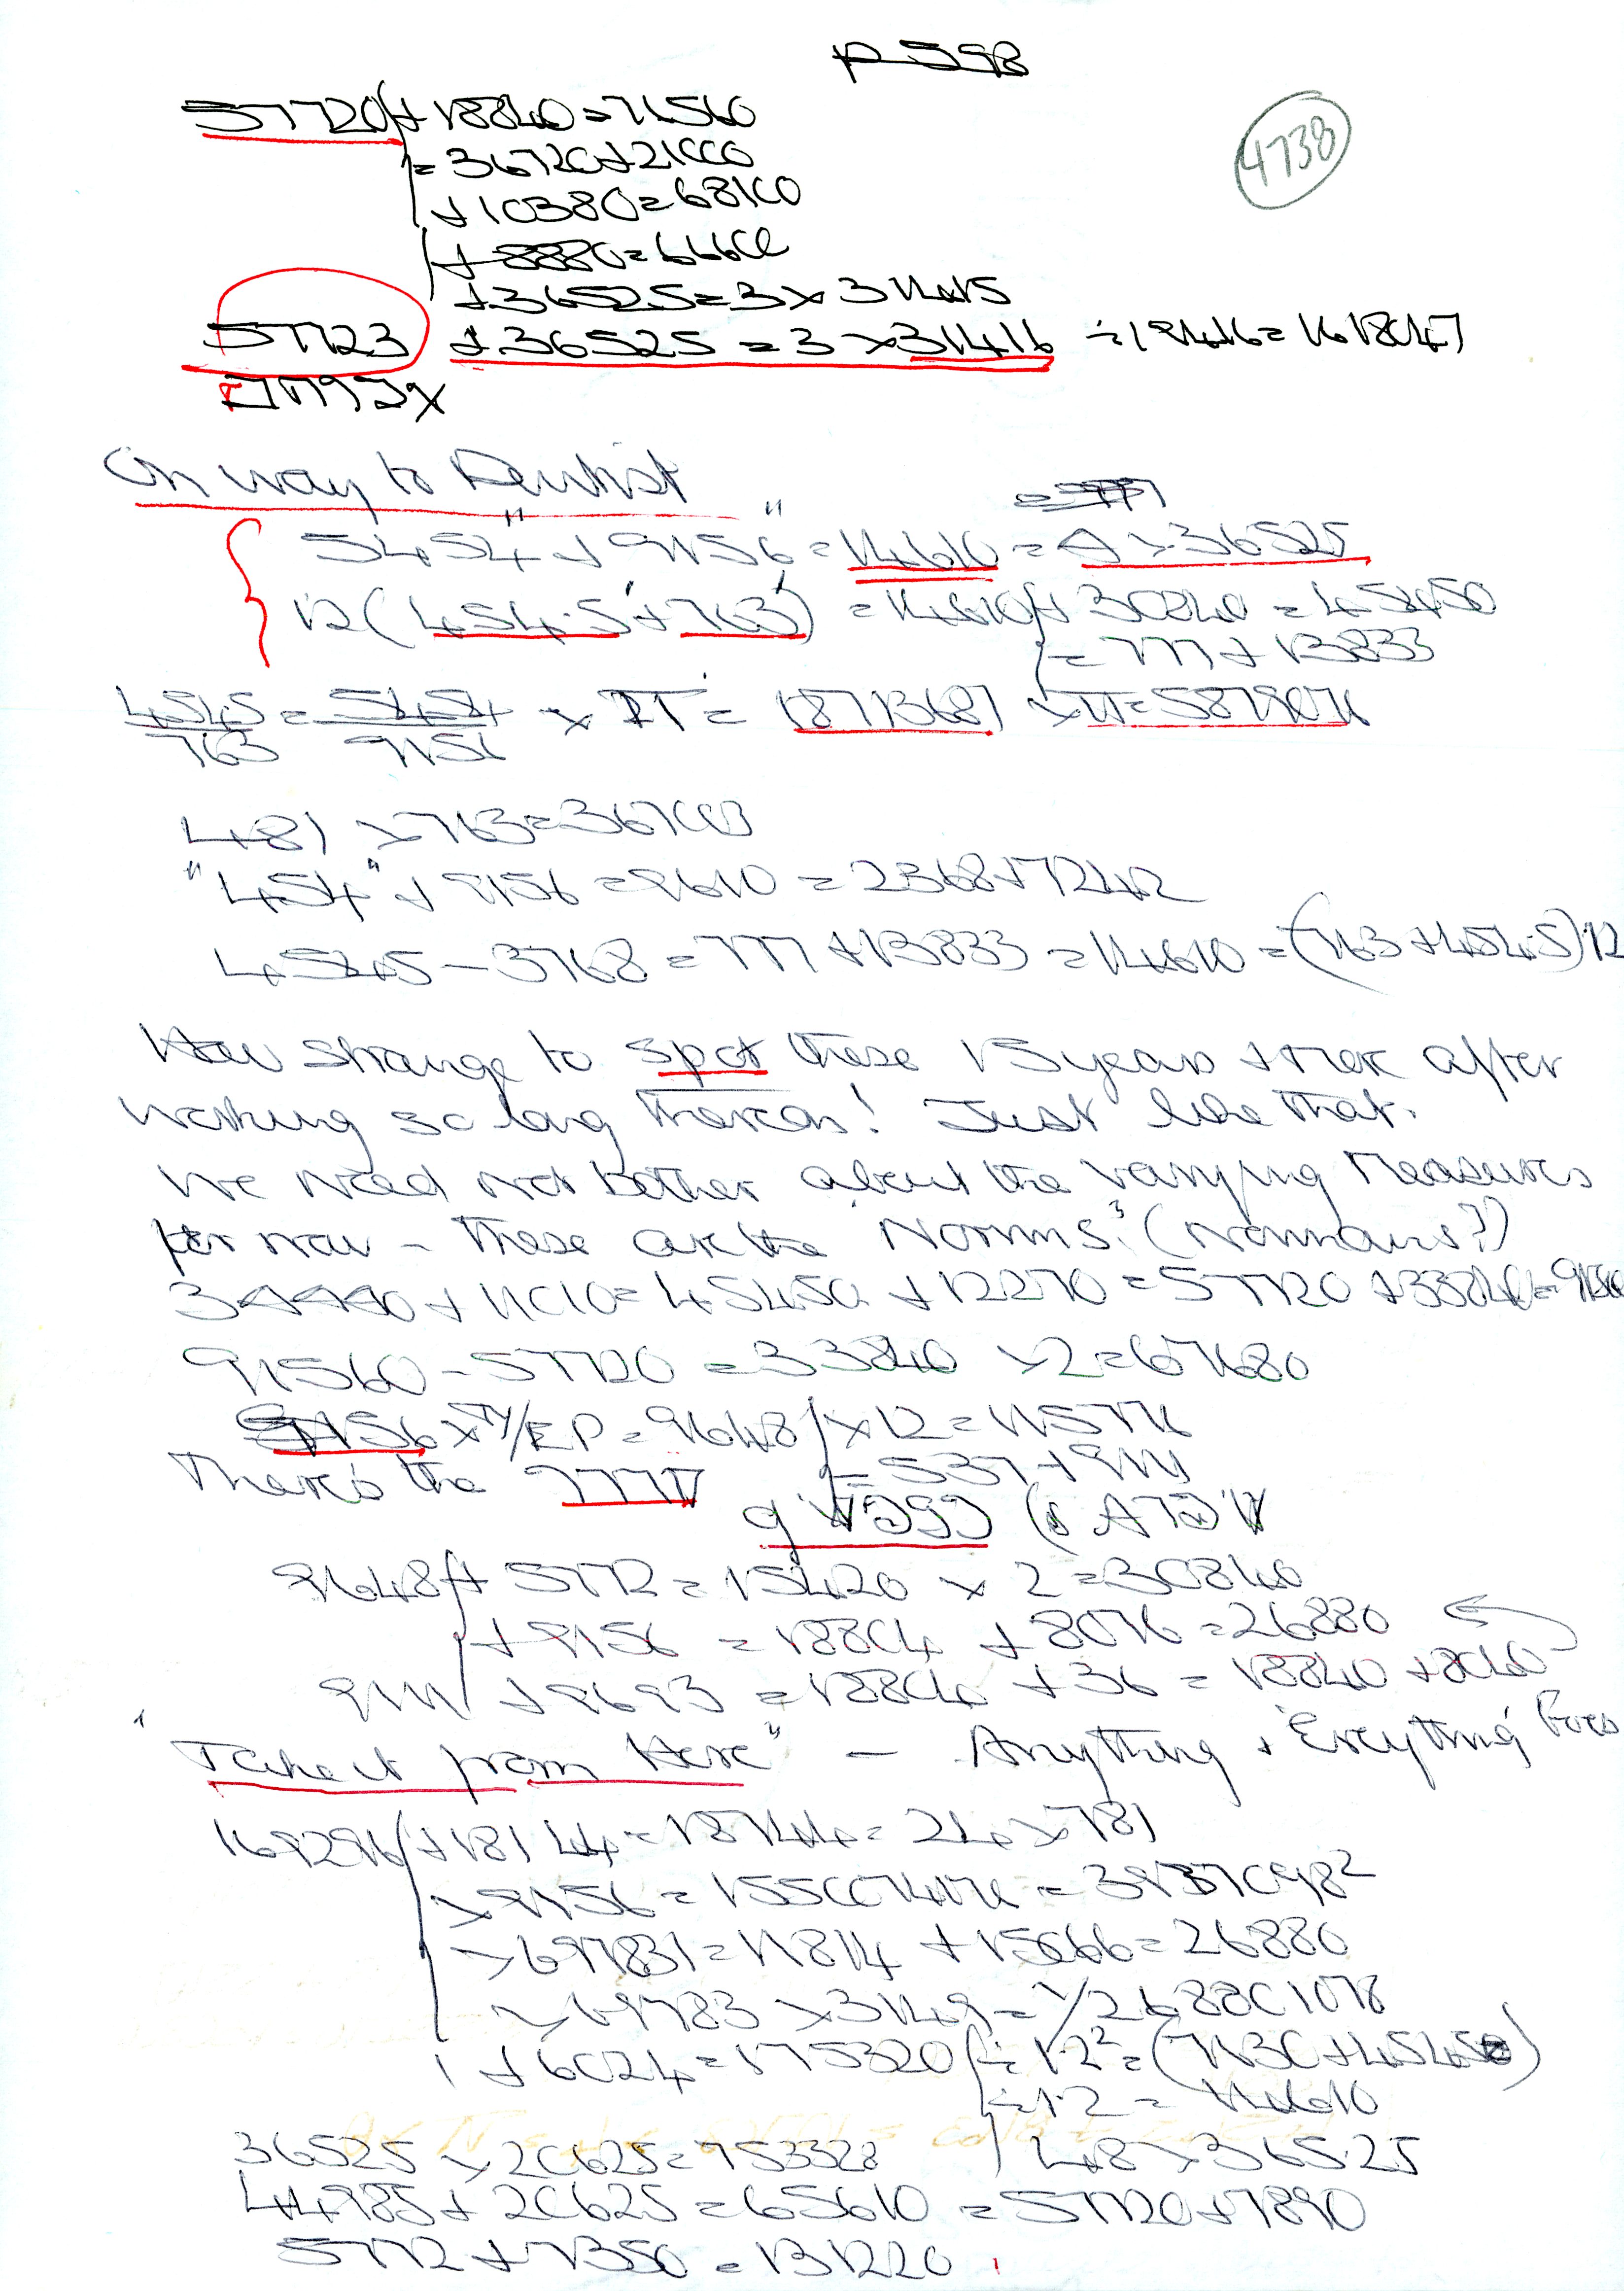 P 598
4738
57720 + 13840 = 71560
= 36720 + 21000
+ 10380 = 68100
+ 8880 = 66600
+ 36525 = 3 × 31415
57723 + 36525 = 3 × 31416 ÷ 19416 = 1618047
On way to Dentist
= 777
5454" + 9156" = 14610 = 4 × 36525
12 (454.5 + 763) = 14610 + 30840 = 45450
= 777 + 13833
4545 / 763 = 5454 / 9156 × π = 1871368 × π = 5879071
481 × 763 = 367003
"454" + 9156 = 9610 = 2368 + 7242
4545 - 3768 = 777 + 13833 = 14610 = (763 + 454.5) 12
How strange to spot these 15 years + more after
working so long thereon! Just like that.
We need not bother about the varying measures
for now - these are the 'Norms'. (Normans?)
34440 + 11010 = 45450 + 12270 = 57720 + 33840 = 91560
91560 - 57720 = 33840 × 2 = 67680
9156 × TY/EP = 9648 × 12 = 115776
= 537 + 9111
There's the 777
9648 + 5772 = 15420 × 2 = 30840
+ 9156 = 18804 + 8076 = 26880
9111 + 9693 = 18804 + 36 = 18840 + 8040
"Take it from Here" - Anything + 'Everything' Goes
169296 + 18144 = 187440 = 24 × 781
× 9156 = 1550074176 = 3937098²
× 697831 = 11814 + 15066 = 26880
× 69783 × 3149 = 1/268801078
+ 6024 = 175320 ÷ 12² = (7630 + 45450)
÷ 12 = 14610
36525 × 20625 = 753328 48 × 36525
44985 + 20625 = 65610 = 57720 + 7890
5772 + 7350 = 131220